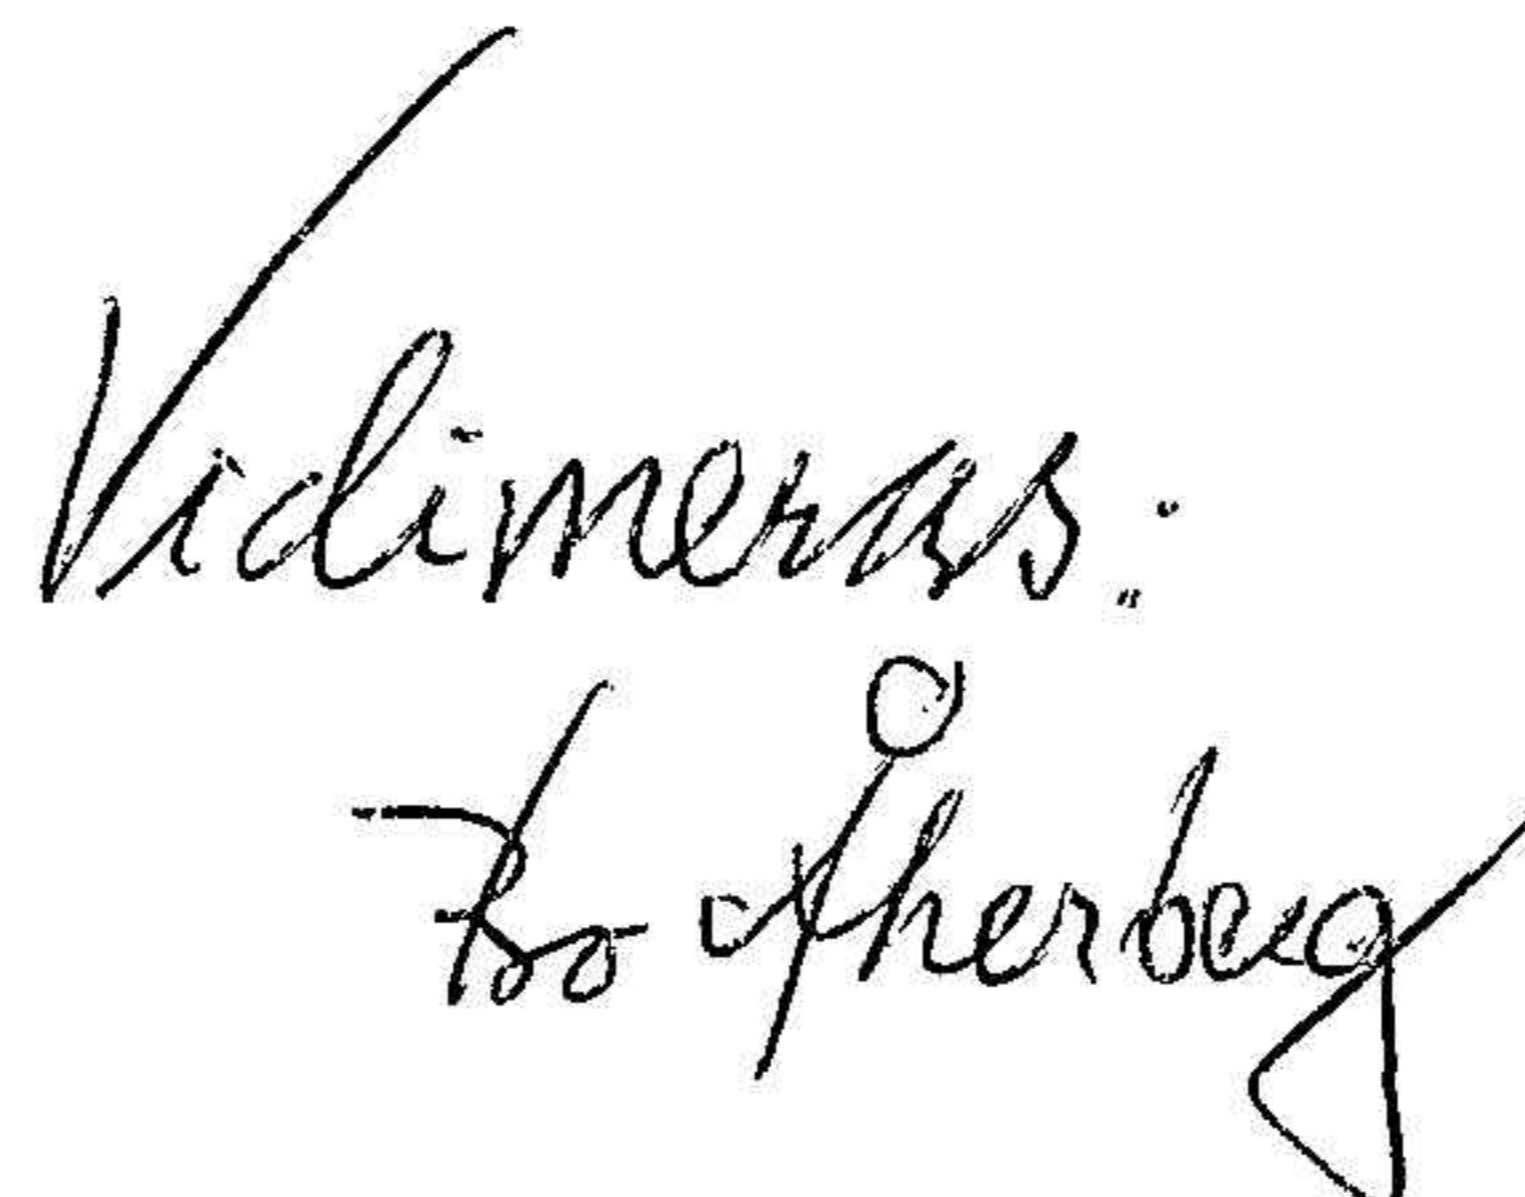 Vidimeras:
Bo Åkerberg